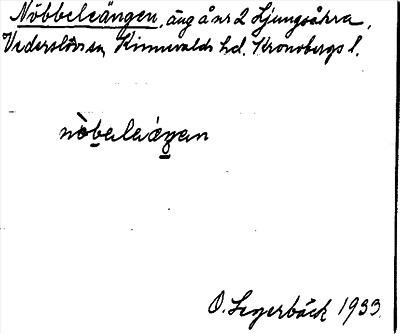 Nöbbeleängen, äng å nr 2 Ljungsåkra,
Vederslövs sn, Kinnevalds hd. Kronobergs l.
nòbeleáŋen
O. Segerbäck 1933.